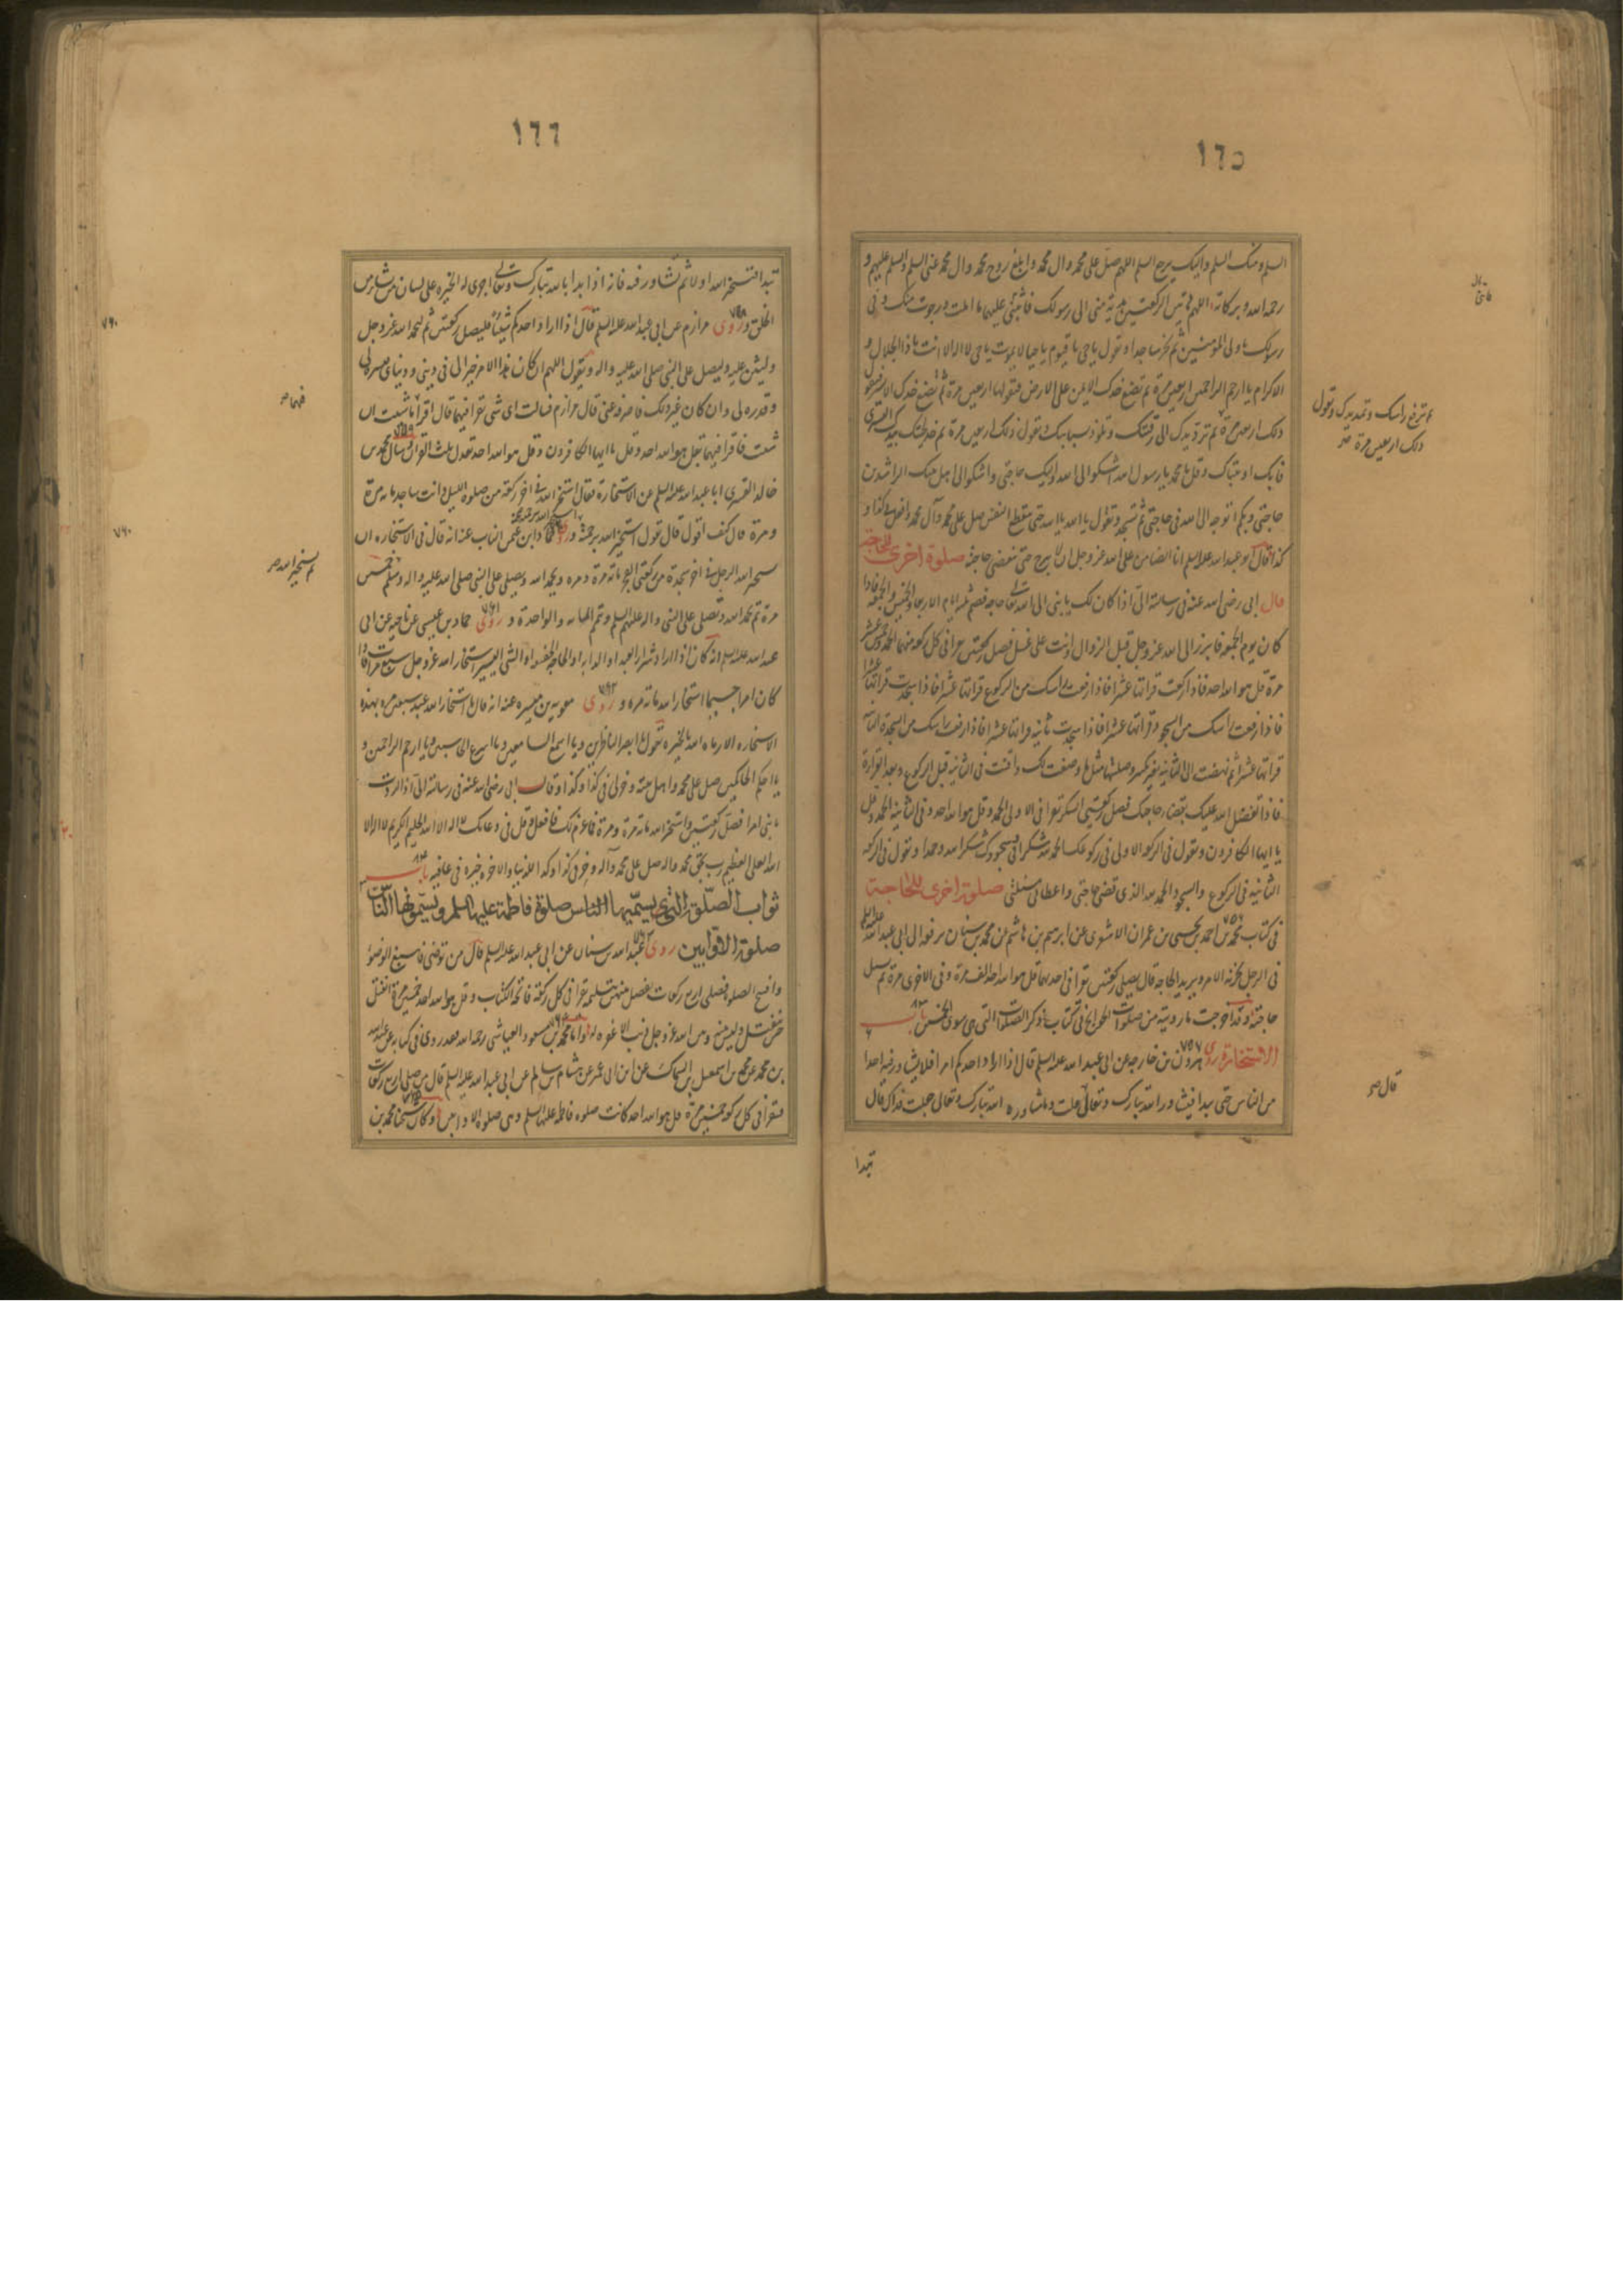 ١٦٥
السلم ومنك السلم واليك يرجع السلم اللهم صل على محمد وال محمد وابلغ روح محمد وال محمد عنى السلم والسلم عليهم و
رحمة الله وبركاته اللهم ان هاتين الركعتين هدية منى الى رسولك فاثبنى عليهما ما املت ورجوت منك وفى
رسولك يا ولى المؤمنين ثم تخر ساجدا وتقول يا حى يا قيوم يا حيا لا يموت يا حى لا اله الا انت يا ذا الجلال و
الاكرام يا ارحم الراحمين اربعين مرة ثم تضع خدك الايمن على الارض فتقولها اربعين مرة ثم تضع خدك الايسر فتقول
ذلك اربعين مرة ثم ترد يدك الى رقبتك وتلوذ بسبابتك وتقول ذلك اربعين مرة ثم خذ لحيتك بيدك اليسرى
فابك او تباك وقل يا محمد يا رسول الله اشكو الى الله واليك حاجتى واشكو الى اهل بيتك الراشدين
حاجتى وبكم اتوجه الى الله فى حاجتى ثم تسجد وتقول يا الله يا الله حتى ينقطع النفس صل على محمد وآل محمد وافعل بى كذا و
كذا قال ابو عبد الله عليه السلم انا الضامن على الله عز وجل ان لا يبرح حتى تقضى حاجته صلوة اخرى للحاجة
قال ابى رضى الله عنه فى رسالته الى اذا كان لك يا بنى الى الله تعالى حاجة فصم ثلثة ايام الاربعا والخميس والجمعة فاذا
كان يوم الجمعة فابرز الى الله عز وجل قبل الزوال وانت على غسل فصل ركعتين تقرا فى كل ركعة منهما الحمد وخمس عشرة
مرة قل هو الله احد فاذا ركعت قراتها عشرا فاذا رفعت راسك من الركوع قراتها عشرا فاذا سجدت قراتها عشرا
فاذا رفعت راسك من السجود قراتها عشرا فاذا سجدت ثانية قراتها عشرا فاذا رفعت راسك من السجدة الثانية
قراتها عشرا ثم نهضت الى الثانية بغير تكبير وصليتها مثل ما وصفت لك واقنت فى الثانية قبل الركوع وبعد القراءة
فاذا تفضل الله عليك بقضاء حاجتك فصل ركعتى الشكر تقرا فى الاولى الحمد وقل هو الله احد وفى الثانية الحمد وقل
يا ايها الكافرون وتقول فى الركعة الاولى فى ركوعك الحمد لله شكرا وفى سجودك شكرا لله وحمدا وتقول فى الركعة
الثانية فى الركوع والسجود الحمد لله الذى قضى حاجتى واعطانى مسئلتى صلوة اخرى للحاجة
فى كتاب محمد بن احمد بن يحيى بن عمران الاشعرى عن ابرهيم بن هاشم عن محمد بن سنان يرفعه الى ابى عبد الله عليه السلم
فى الرجل يحزنه الامر ويريد الحاجة قال يصلى ركعتين يقرا فى احديهما قل هو الله احد الف مرة وفى الاخرى مرة ثم يسئل
حاجته وقد اخرجت ما رويته من صلوات الحوائج فى كتاب ذكر الصلوات التى هى سوى الخمس باب
الاستخارة روى هرون بن خارجة عن ابى عبد الله عليه السلم قال اذا اراد احدكم امرا فلا يشاور فيه احدا
من الناس حتى يبدا فيشاور الله تبارك وتعالى قلت وما مشاورة الله تبارك وتعالى جعلت فداك قال
تبدا
ثم ترفع راسك وتمد يديك وتقول
ذلك اربعين مرة صح
قال صح
١٦٦
تبدا فتستخير الله اولا ثم تشاور فيه فانه اذا بدا بالله تبارك وتعالى اجرى له الخيرة على لسان من شاء من
الخلق وروى مرازم عن ابى عبد الله عليه السلم قال اذا اراد احدكم شيئا فليصل ركعتين ثم ليحمد الله عز وجل
وليثن عليه وليصل على النبى صلى الله عليه واله ويقول اللهم ان كان هذا الامر خيرا لى فى دينى ودنياى فيسره لى
وقدره لى وان كان غير ذلك فاصرفه عنى قال مرازم فسالت اى شى تقرا فيهما قال اقرا ما شئت ان
شئت فاقرا فيهما بقل هو الله احد وقل يا ايها الكافرون وقل هو الله احد تعدل ثلث القران وسال محمد بن
خالد القسرى ابا عبد الله عليه السلم عن الاستخارة فقال استخر الله فى اخر ركعة من صلوة الليل وانت ساجد مائة مرة
ومرة قال كيف اقول قال تقول استخير الله برحمته وروى حماد ابن عثمن الناب عنه انه قال فى الاستخارة ان
يستخير الله الرجل فى اخر سجدة من ركعتى الفجر مائة مرة ومرة ويحمد الله ويصلى على النبى صلى الله عليه واله وسلم خمسين
مرة ثم يحمد الله ويصلى على النبى واله عليهم السلم ويتم المائة والواحدة وروى حماد بن عيسى عن ناجية عن ابى
عبد الله عليه السلم انه كان اذا اراد شراء العبد او الدابة او الحاجة الخفيفة او الشى اليسير استخار الله عز وجل سبع مرات فاذا
كان امرا جسيما استخار الله مائة مرة وروى معوية بن ميسرة عنه انه قال ما استخار الله عبد سبعين مرة بهذه
الاستخارة الا رماه الله بالخيرة تقول يا ابصر الناظرين ويا اسمع السامعين ويا اسرع الحاسبين ويا ارحم الراحمين و
يا احكم الحاكمين صل على محمد واهل بيته وخر لى فى كذا وكذا وقال ابى رضى الله عنه فى رسالته الى اذا اردت
يا بنى امرا فصل ركعتين واستخر الله مائة مرة ومرة فما عزم لك فافعل وقل فى دعائك لا اله الا الله الحليم الكريم لا اله الا
الله العلى العظيم رب بحق محمد واله صل على محمد وآله وخر لى فى كذا وكذا للدنيا والاخرة خيرة فى عافية باب
ثواب الصلوة التى يسميها الناس صلوة فاطمة عليها السلم ويسمونها الناس
صلوة الاوابين روى عبد الله بن سنان عن ابى عبد الله عليه السلم قال من توضى فاسبغ الوضوا
وافتتح الصلوة فصلى اربع ركعات يفصل بينهن بتسليمة يقرا فى كل ركعة فاتحة الكتاب وقل هو الله احد خمسين مرة انفتل
حين ينفتل وليس بينه وبين الله عز وجل ذنب الا غفره له واما محمد بن مسعود العياشى رحمه الله فقد روى فى كتابه عن عبد الله
بن محمد عن محمد بن اسمعيل بن السماك عن ابن ابى عمير عن هشام بن سالم عن ابى عبد الله عليه السلم قال من صلى اربع ركعات
فقرا فى كل ركعة خمسين مرة قل هو الله احد كانت صلوة فاطمة عليها السلم وهى صلوة الاوابين وكان شيخنا محمد بن
فيهما صح
٧٦٠
ثم يستخير الله صح